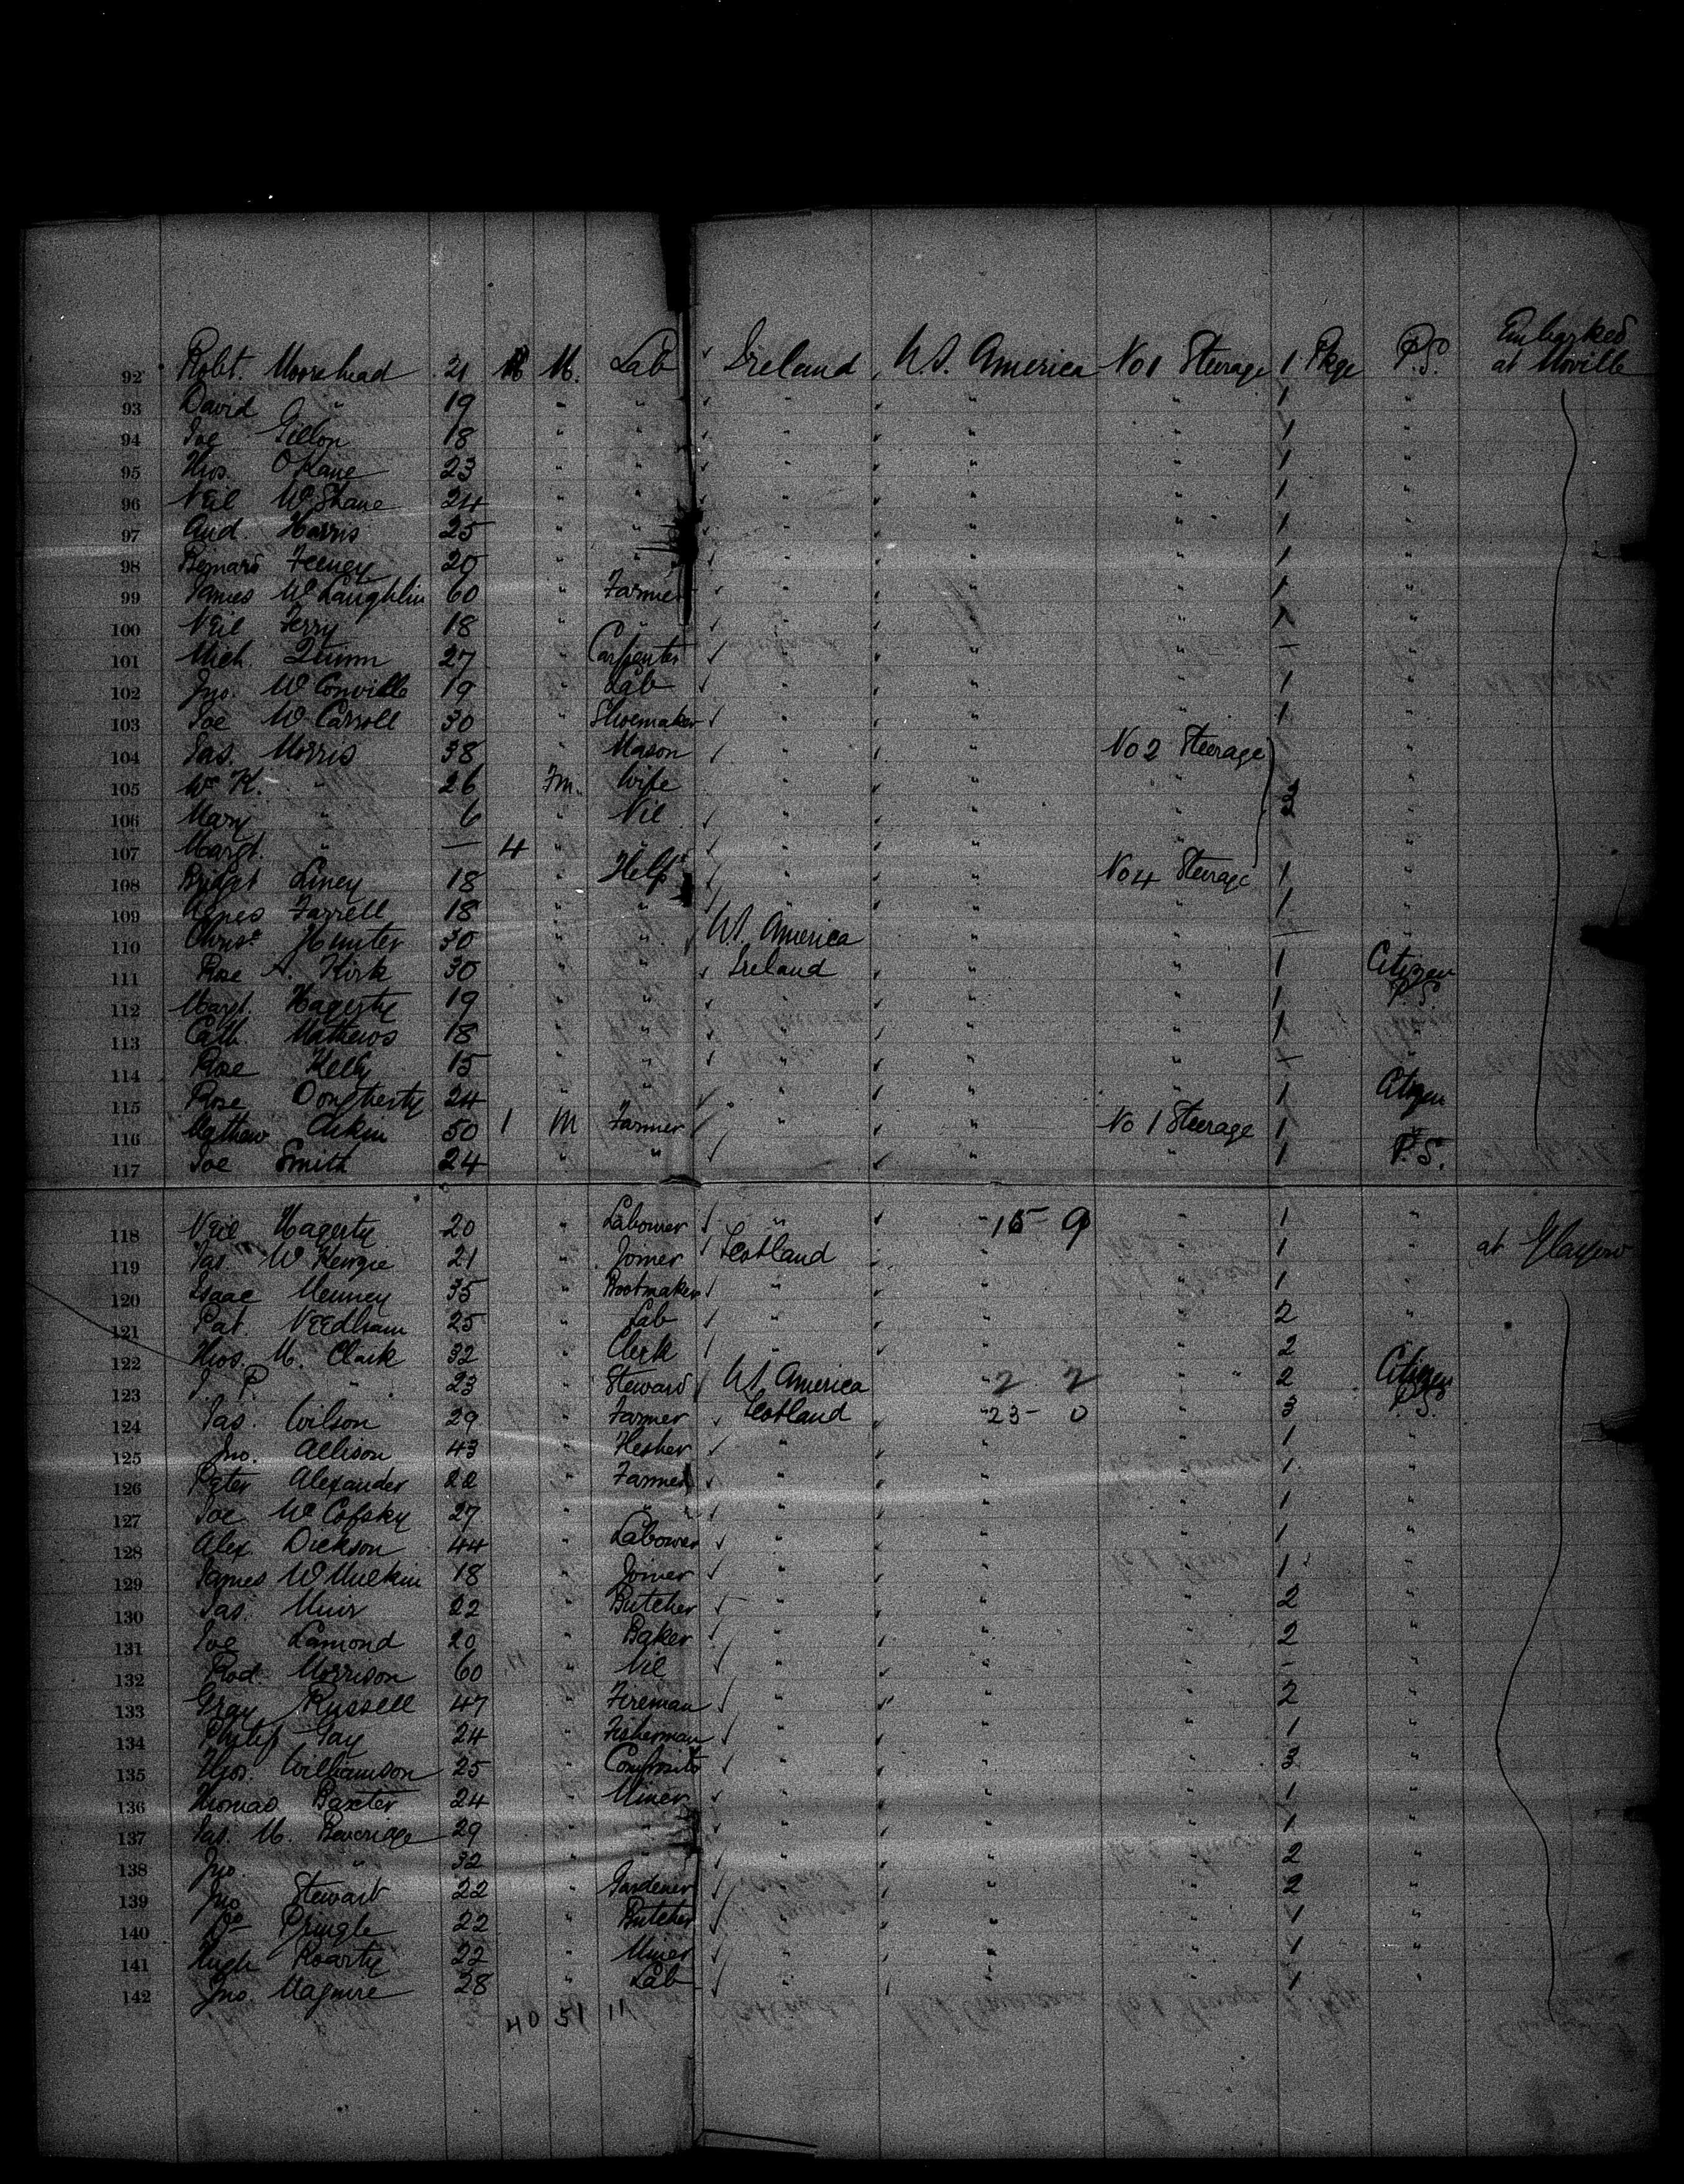 Embarked
92 Robt. Moorehead 21 M. Lab Ireland U.S. America No 1 Steerage 1 Pkge P.S. at Moville
93 David " 19 " " " " " 1 "
94 Joe Gillon 18 " " " " " 1 "
95 Thos. O'Kane 23 " " " " " 1 "
96 Neil McShane 24 " " " " " 1 "
97 And. Harris 25 " " " " " 1 "
98 Bernard Feeney 20 " " " " " 1 "
99 James McLaughlin 60 " Farmer " " " 1 "
100 Neil Ferry 18 " " " " " 1 "
101 Mich. Quinn 27 " Carpenter " " " — "
102 Jno. McConville 19 " Lab " " " 1 "
103 Joe McCarroll 30 " Shoemaker " " " 1 "
104 Jas. Morris 38 " Mason " " No 2 Steerage "
105 K. " 26 Fm. Wife " " " "
106 Mary " 6 " Nil " " " 3 "
107 Margt. " — 4 " " " " " "
108 Bridget 18 " Help " " No 4 Steerage 1 "
109 Agnes Farrell 18 " " " " " 1 "
110 Hunter 30 " " U.S. America " " — "
111 Rose A. Kirk 30 " " Ireland " " 1 Citizen
112 Margt. Hagerty 19 " " " " " 1 P.S.
113 Cath. Mathews 18 " " " " " 1 "
114 Rose Kelly 15 " " " " " "
115 Rose Dougherty 24 " " " " " 1 Citizen
116 Mathew Aikin 50 1 M Farmer " " No 1 Steerage 1 "
117 Joe Smith 24 " " " " " 1 P.S.
118 Neil Hagerty 20 " Labourer " " 15 9 " 1 "
119 Jas. McKenzie 21 " Joiner Scotland " 1 " at Glasgow
120 Isaac Menney 35 " Bootmaker " " 1 "
121 Pat. Needham 25 " Lab " " " 2 "
122 Thos. M. Clark 32 " Clerk " " " 2 "
123 J. P. " 23 " Steward U.S. America " 2 2 " 2 Citizen
124 Jas. Wilson 29 " Farmer Scotland " 23 - 0 " 3 P.S.
125 Jno. Allison 43 " Flesher " " " 1 "
126 Peter Alexander 22 " Farmer " " " 1 "
127 Joe 27 " " " " " 1 "
128 Alex. Dickson 44 " Labourer " " " 1 "
129 James 18 " Joiner " " " 1 "
130 Jas. Muir 22 " Butcher " " " 2 "
131 Joe Lamond 20 " Baker " " " 2 "
132 Rod. Morrison 60 " Nil " " " - "
133 Gray Russell 47 " Fireman " " " 2 "
134 Philip Gay 24 " Fisherman " " " 1 "
135 Thos. Williamson 25 " Compositr " " " 3 "
136 Thomas Baxter 24 " Miner " " " 1 "
137 Jas. M. Beveridge 29 " " " " " 1 "
138 Jno. " 32 " " " " " 2 "
139 Jno Stewart 22 " Gardener " " " 2 "
140 Do Pringle 22 " Butcher " " " 1 "
141 Hugh Roarty 22 " Miner " " " 1 "
142 Jno. Maguire 28 " Lab " " " 1 "
40 51 11